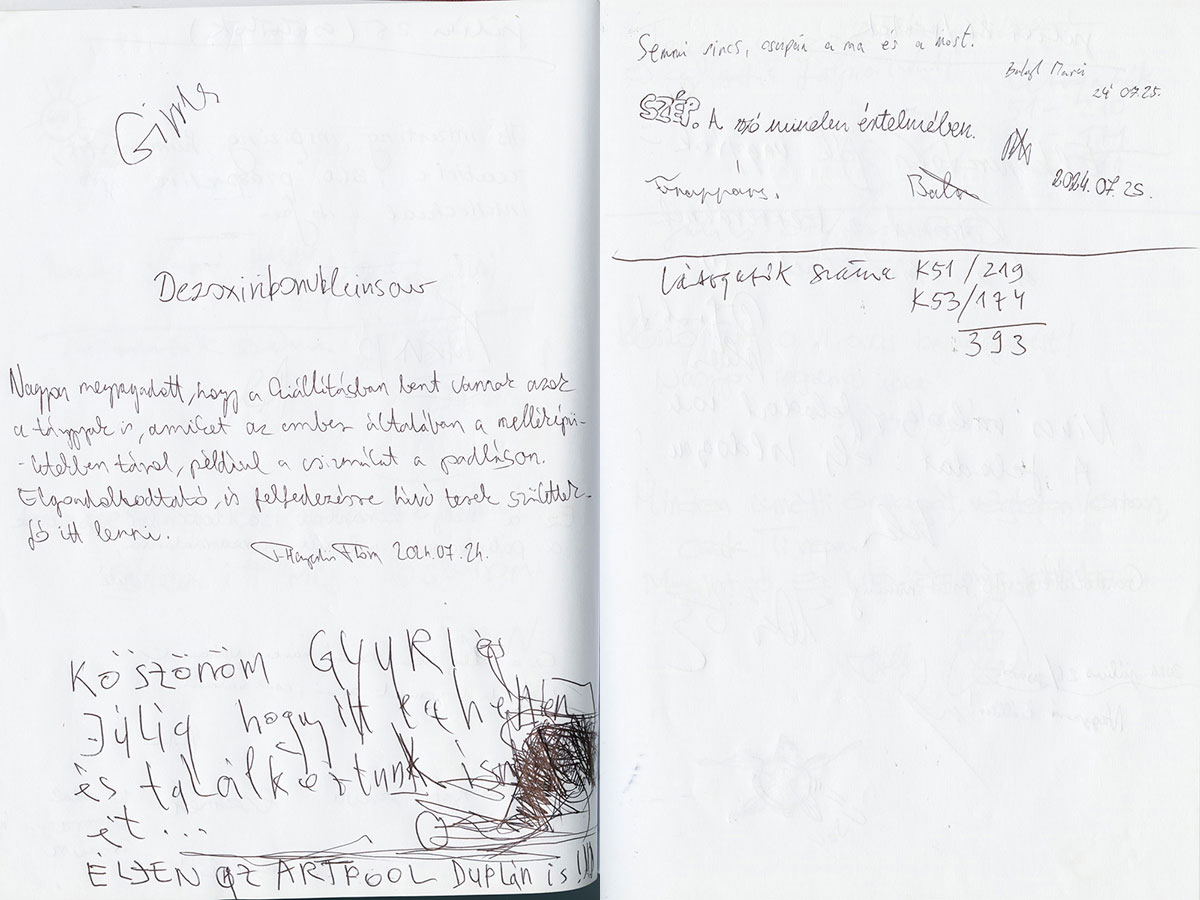 Dezoxiribonukleinsav
Nagyon megragadott, hogy a kiállításban bent vannak azok
a tárgyak is, amiket az ember általában a melléképü-
-letekben tárol, például a csizmákat a padláson.
Elgondolkodtató, és felfedezésre hívó terek születtek.
Jó itt lenni.
Flóra 2024.07.24.
KÖSZÖNÖM GYURI és
Júlia hogy itt
és találkoztunk ism
ét...
ÉLJEN AZ ARTPOOL Duplán is!!!
Semmi sincs, csupán a ma és a most.
Marci
24' 07.25.
SZÉP. A szó minden értelmében.
Frappáns.
2024.07.25.
Látogatók száma K51/219
K53/174
393